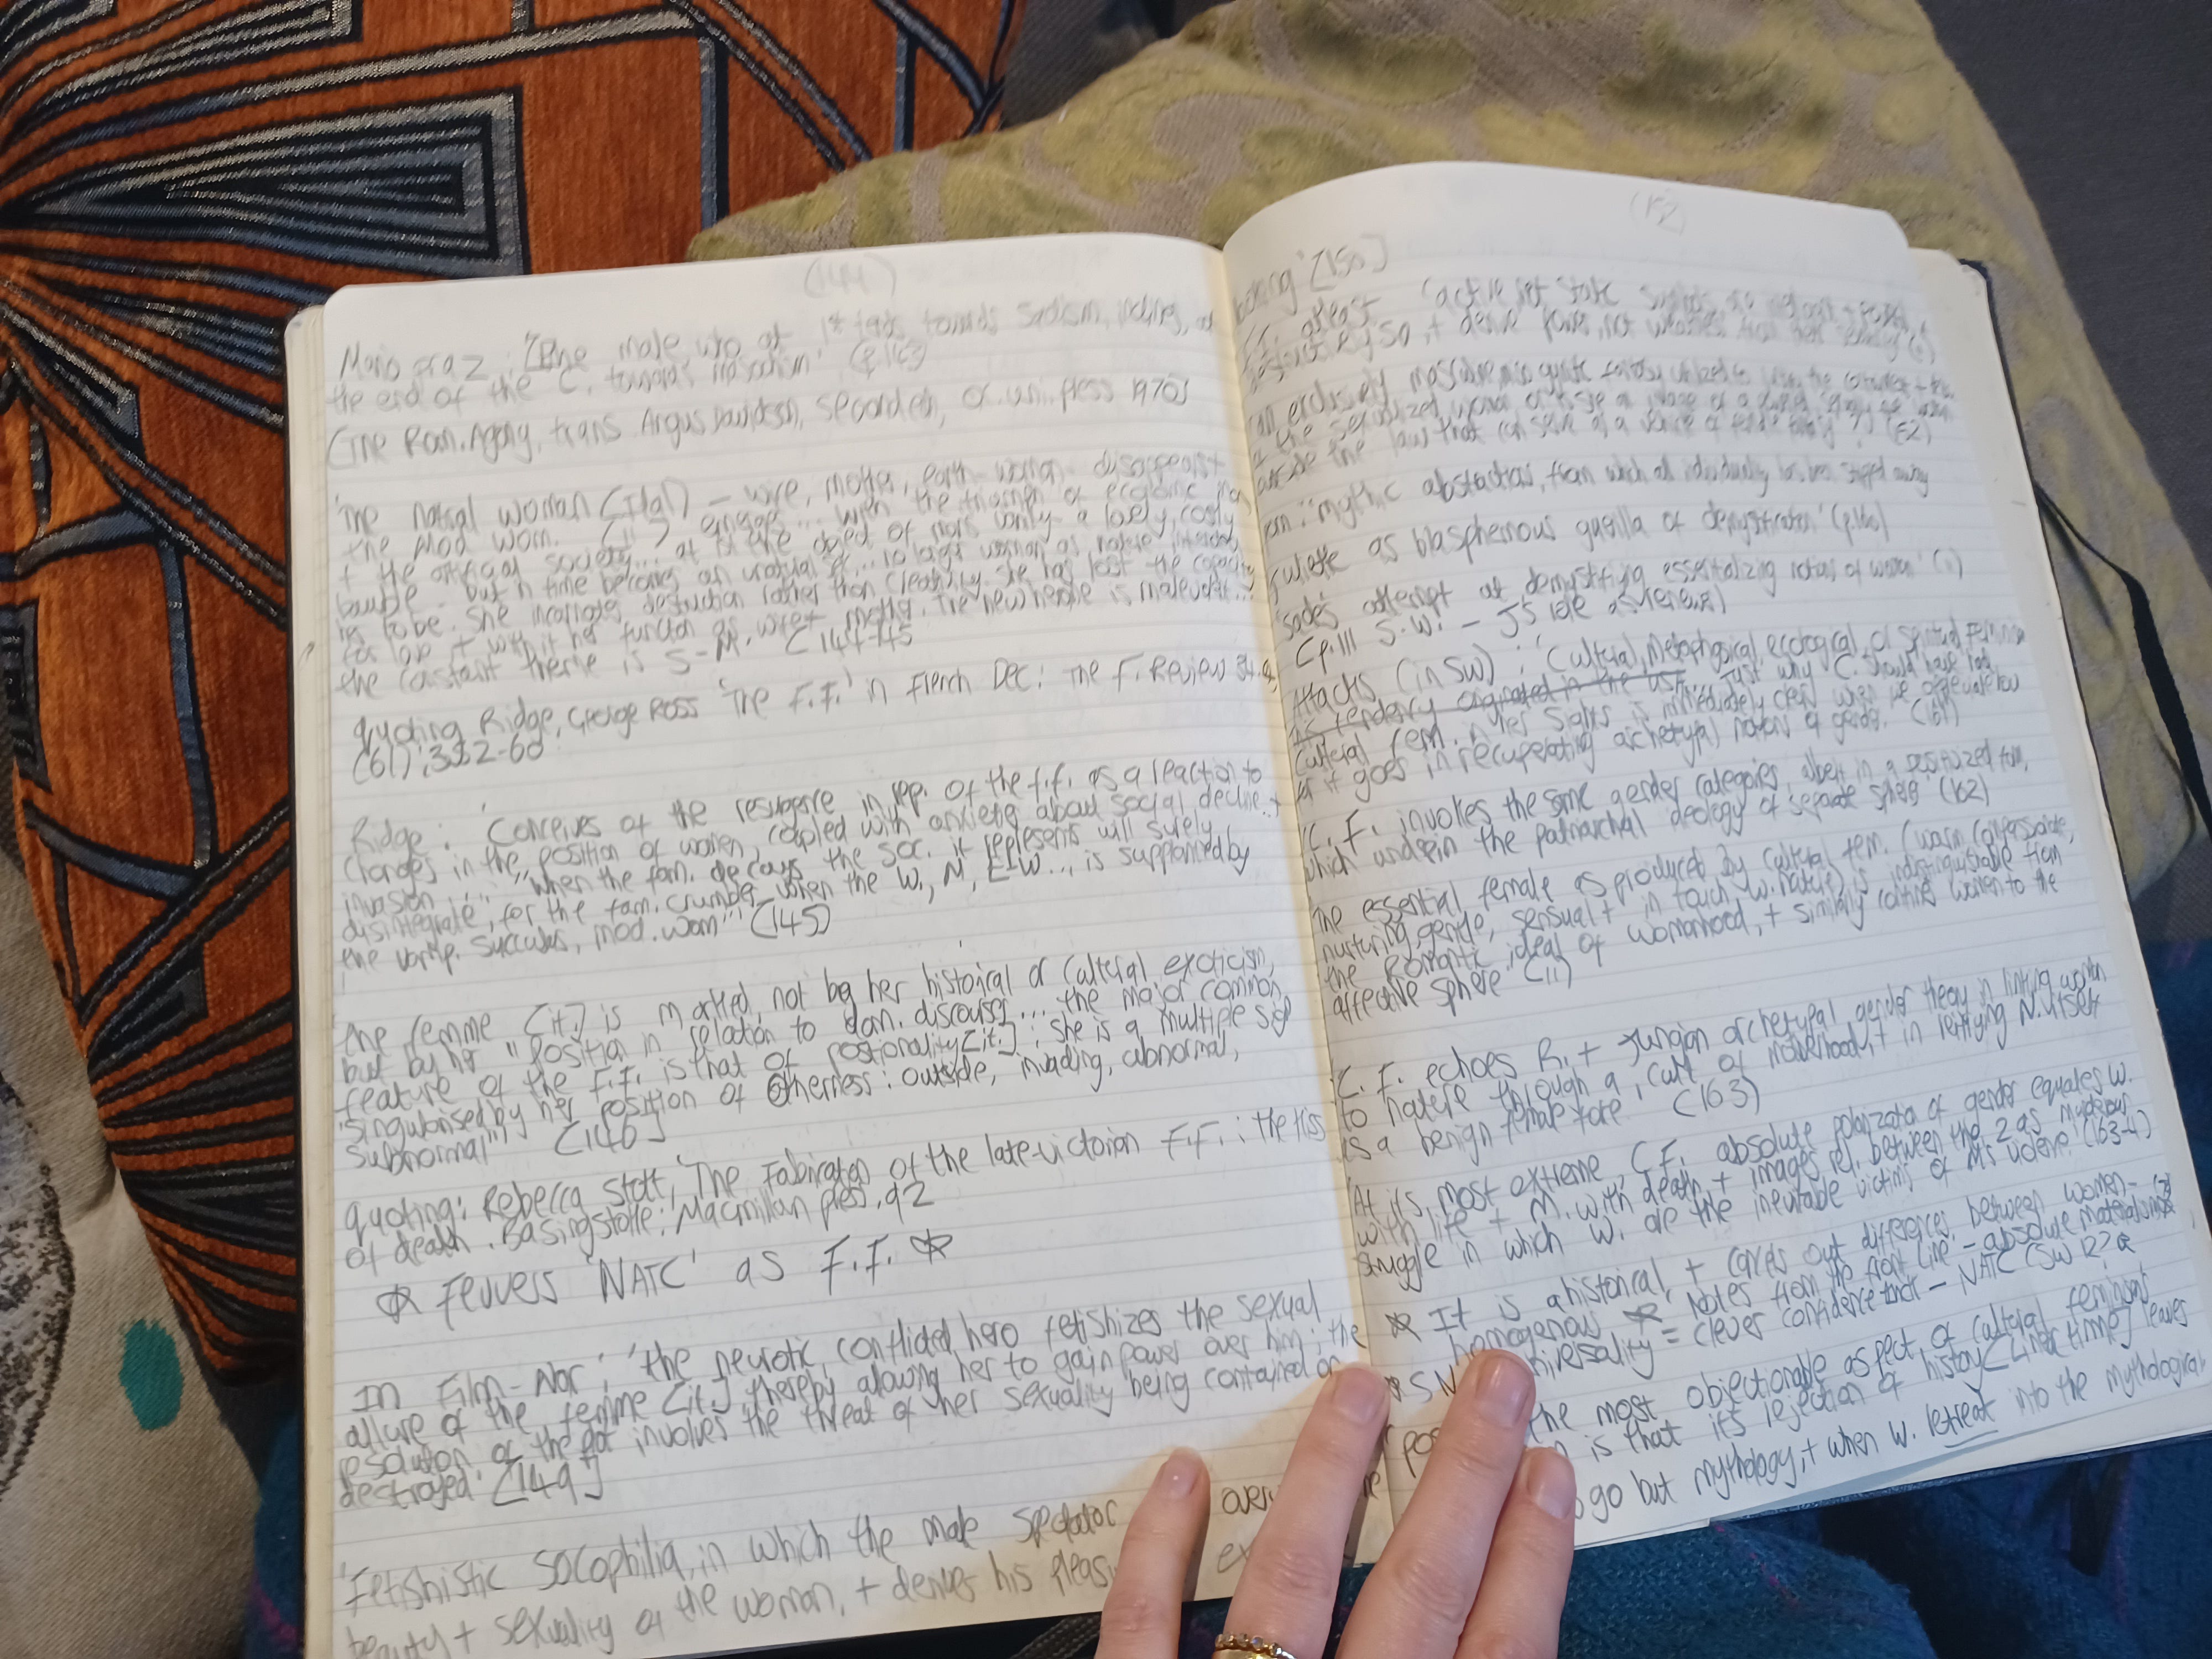 (144)
Mario Praz: '[T]he male, who at 1st tends towards sadism, inclines, at
the end of the C. towards masochism' (p.163)
(The Rom. Agony, trans. Angus Davidson, second edn, Ox. uni. press 1970)
'The natural woman (Ital) – wife, mother, earth-woman – disappears +
the Mod wom. (") emerges ... with the triumph of economic man
+ the artificial society ... at 1st the object of more vanity – a lovely, costly
bauble, but in time becomes an unnatural ... no longer woman as nature intended
her to be. She incarnates destruction rather than creativity. She has lost the capacity
for love + with it her function as wife + mother. The new heroine is malevolent...
the constant theme is S-M. [144-45
quoting Ridge, George Ross 'The F.F.' in French Dec: The F. Review 34.
(61); 352-60
Ridge: 'Conceives of the resurgence in rep. of the f.f. as a reaction to
changes in the position of women, coupled with anxiety about social decline +
invasion ...: "When the fam. decays the soc. it represents will surely
disintegrate, for the fam. crumbles when the W, M, E-W ... is supplanted by
the vamp. succubus, mod. wom"' (145)
'the femme [it.] is marked, not by her historical or cultural exoticism,
but by her "position in relation to dom. discourses ... the major common
feature of the F.F. is that of positionality [it.]: she is a multiple sign
singularised by her position of Otherness: outside, invading, abnormal,
subnormal"' [146]
quoting: Rebecca Stott, 'The Fabrication of the late-victorian F.F.: the kiss
of death. Basingstoke: Macmillan press, 92
☆ Fevvers 'NATC' as F.F. ☆
In Film-Noir; 'the neurotic, conflicted hero fetishizes the sexual
allure of the femme [it.] thereby allowing her to gain power over him; the
resolution of the plot involves the threat of her sexuality being contained or
destroyed. [149]
'Fetishistic socophilia, in which the male spectator
beauty + sexuality of the woman, + denies his
(152)
looking' [150]
outside the law that can serve as a
'mythic abstraction, from which all individuality has been stripped away
Juliette as blasphemous guerilla of demystification' (p.160)
Sade's attempt at demystifying essentializing notions of woman' (")
(p.111 S.W. – J's role as
Attacks (in SW): 'Cultural, metaphysical, ecological or spiritual feminism
its tendency originated in the USA ... just why C. should have had
cultural fem. in her sights is immediately clear when we appreciate how
far it goes in recuperating archetypal notions of gender. (161)
'C. F. invokes the same gender categories, albeit in a positivized form,
which underpin the patriarchal ideology of separate spheres' (162)
The essential female as produced by cultural fem. (warm, compassionate,
nurturing, gentle, sensual + in touch w. nature) is indistinguishable from
the Romantic ideal of womanhood, + similarly confines women to the
affective sphere (")
'C. F. echoes R. + Jungian archetypal gender theory in linking women
to nature through a 'cult of motherhood', + in reifying N. itself
as a benign female force. (163)
'At its most extreme, C.F. absolute polarization of gender equates W.
with life + M. with death, + images rel. between the 2 as murderous
struggle in which W. are the inevitable victims of M's violence. (163-4)
☆ It is ahistorical, + cancels out differences between women –
homogenous ☆ Notes from the Front Line – absolute materialism
universality = clever confidence trick – NATC (SW 12)
the most objectionable aspect of cultural feminism
is that its rejection of history [linear time] leaves
go but mythology, + when w. retreat into the mythological